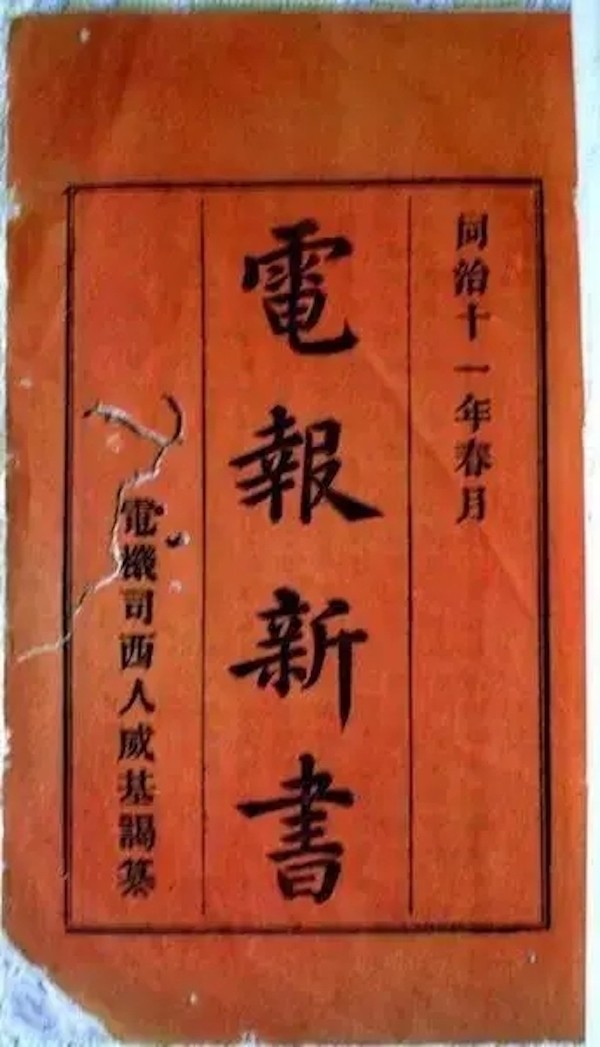 同治十一年春月
電報新書
電機司西人威基謁纂